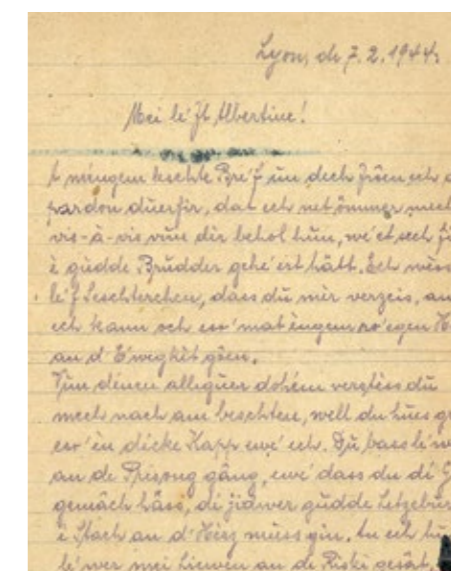 Lyon, de 7. 2. 1944
Mei le'ft Albertine!
t méngem leschte Bre'f un dech froen ech
pardon duerfir, dat ech net ömmer mech
vis-à-vis vun dir behol hun, we' et sech
e gudde Brudder gehe'ert hätt. Ech
le'f Seschterchen, dass du mir verzeis, an
ech kann och eso' mat éngem ro'egen
an d'E'wegkét goen.
Vun dénen alleguer dohém verstés du
mech nach am beschten, well du hues
eso' én décke Kapp ewe' ech. Du bass le'wer
an de Prisong gáng, ewe' dass du di
gemâch häss, di jidwer gudde
e Stach an d'Herz muss gin. An ech
le'wer mei Liewen an de Riskt gesât,